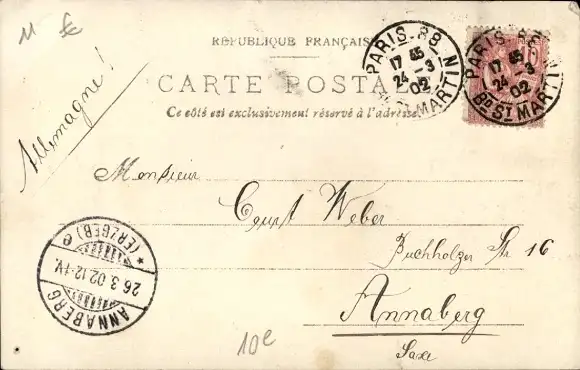 11 €
RÉPUBLIQUE FRANÇAISE
CARTE POSTALE
Ce côté est exclusivement réservé à l'adresse.
PARIS-88
17 45
24 -3
02
Bd ST MARTIN
PARIS-88
17 45
24 -3
02
Bd ST MARTIN
Allemagne!
Monsieur
Curt Weber
Buchholzer Str 16
Annaberg
Saxe
ANNABERG
26.3.02.12-1V.
(ERZGEB) e
10e